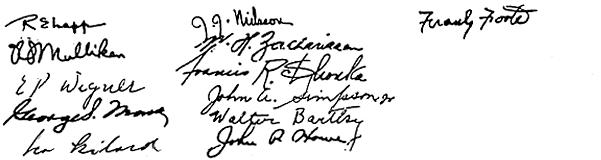 R E Lapp
R S Mulliken
E P Wigner
George S. Monk
Leo Szilard
J. J. Nickson
W. H. Zachariasen
Francis R. Shonka
John A. Simpson Jr
Walter Bartky
John P. Howe Jr
Frank Foote